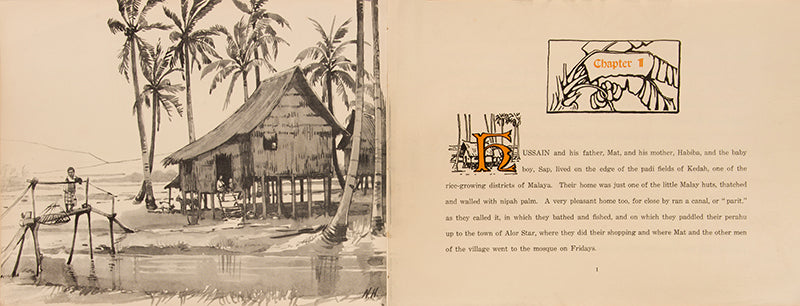 N.H.
Chapter 1
HUSSAIN and his father, Mat, and his mother, Habiba, and the baby
boy, Sap, lived on the edge of the padi fields of Kedah, one of the
rice-growing districts of Malaya. Their home was just one of the little Malay huts, thatched
and walled with nipah palm. A very pleasant home too, for close by ran a canal, or "parit."
as they called it, in which they bathed and fished, and on which they paddled their perahu
up to the town of Alor Star, where they did their shopping and where Mat and the other men
of the village went to the mosque on Fridays.
1